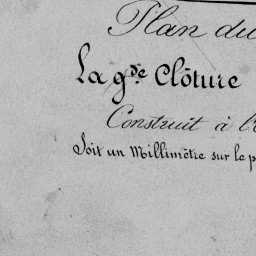 Plan du
La g.de Clôture
Construit à l'
Soit un Millimètre sur le p